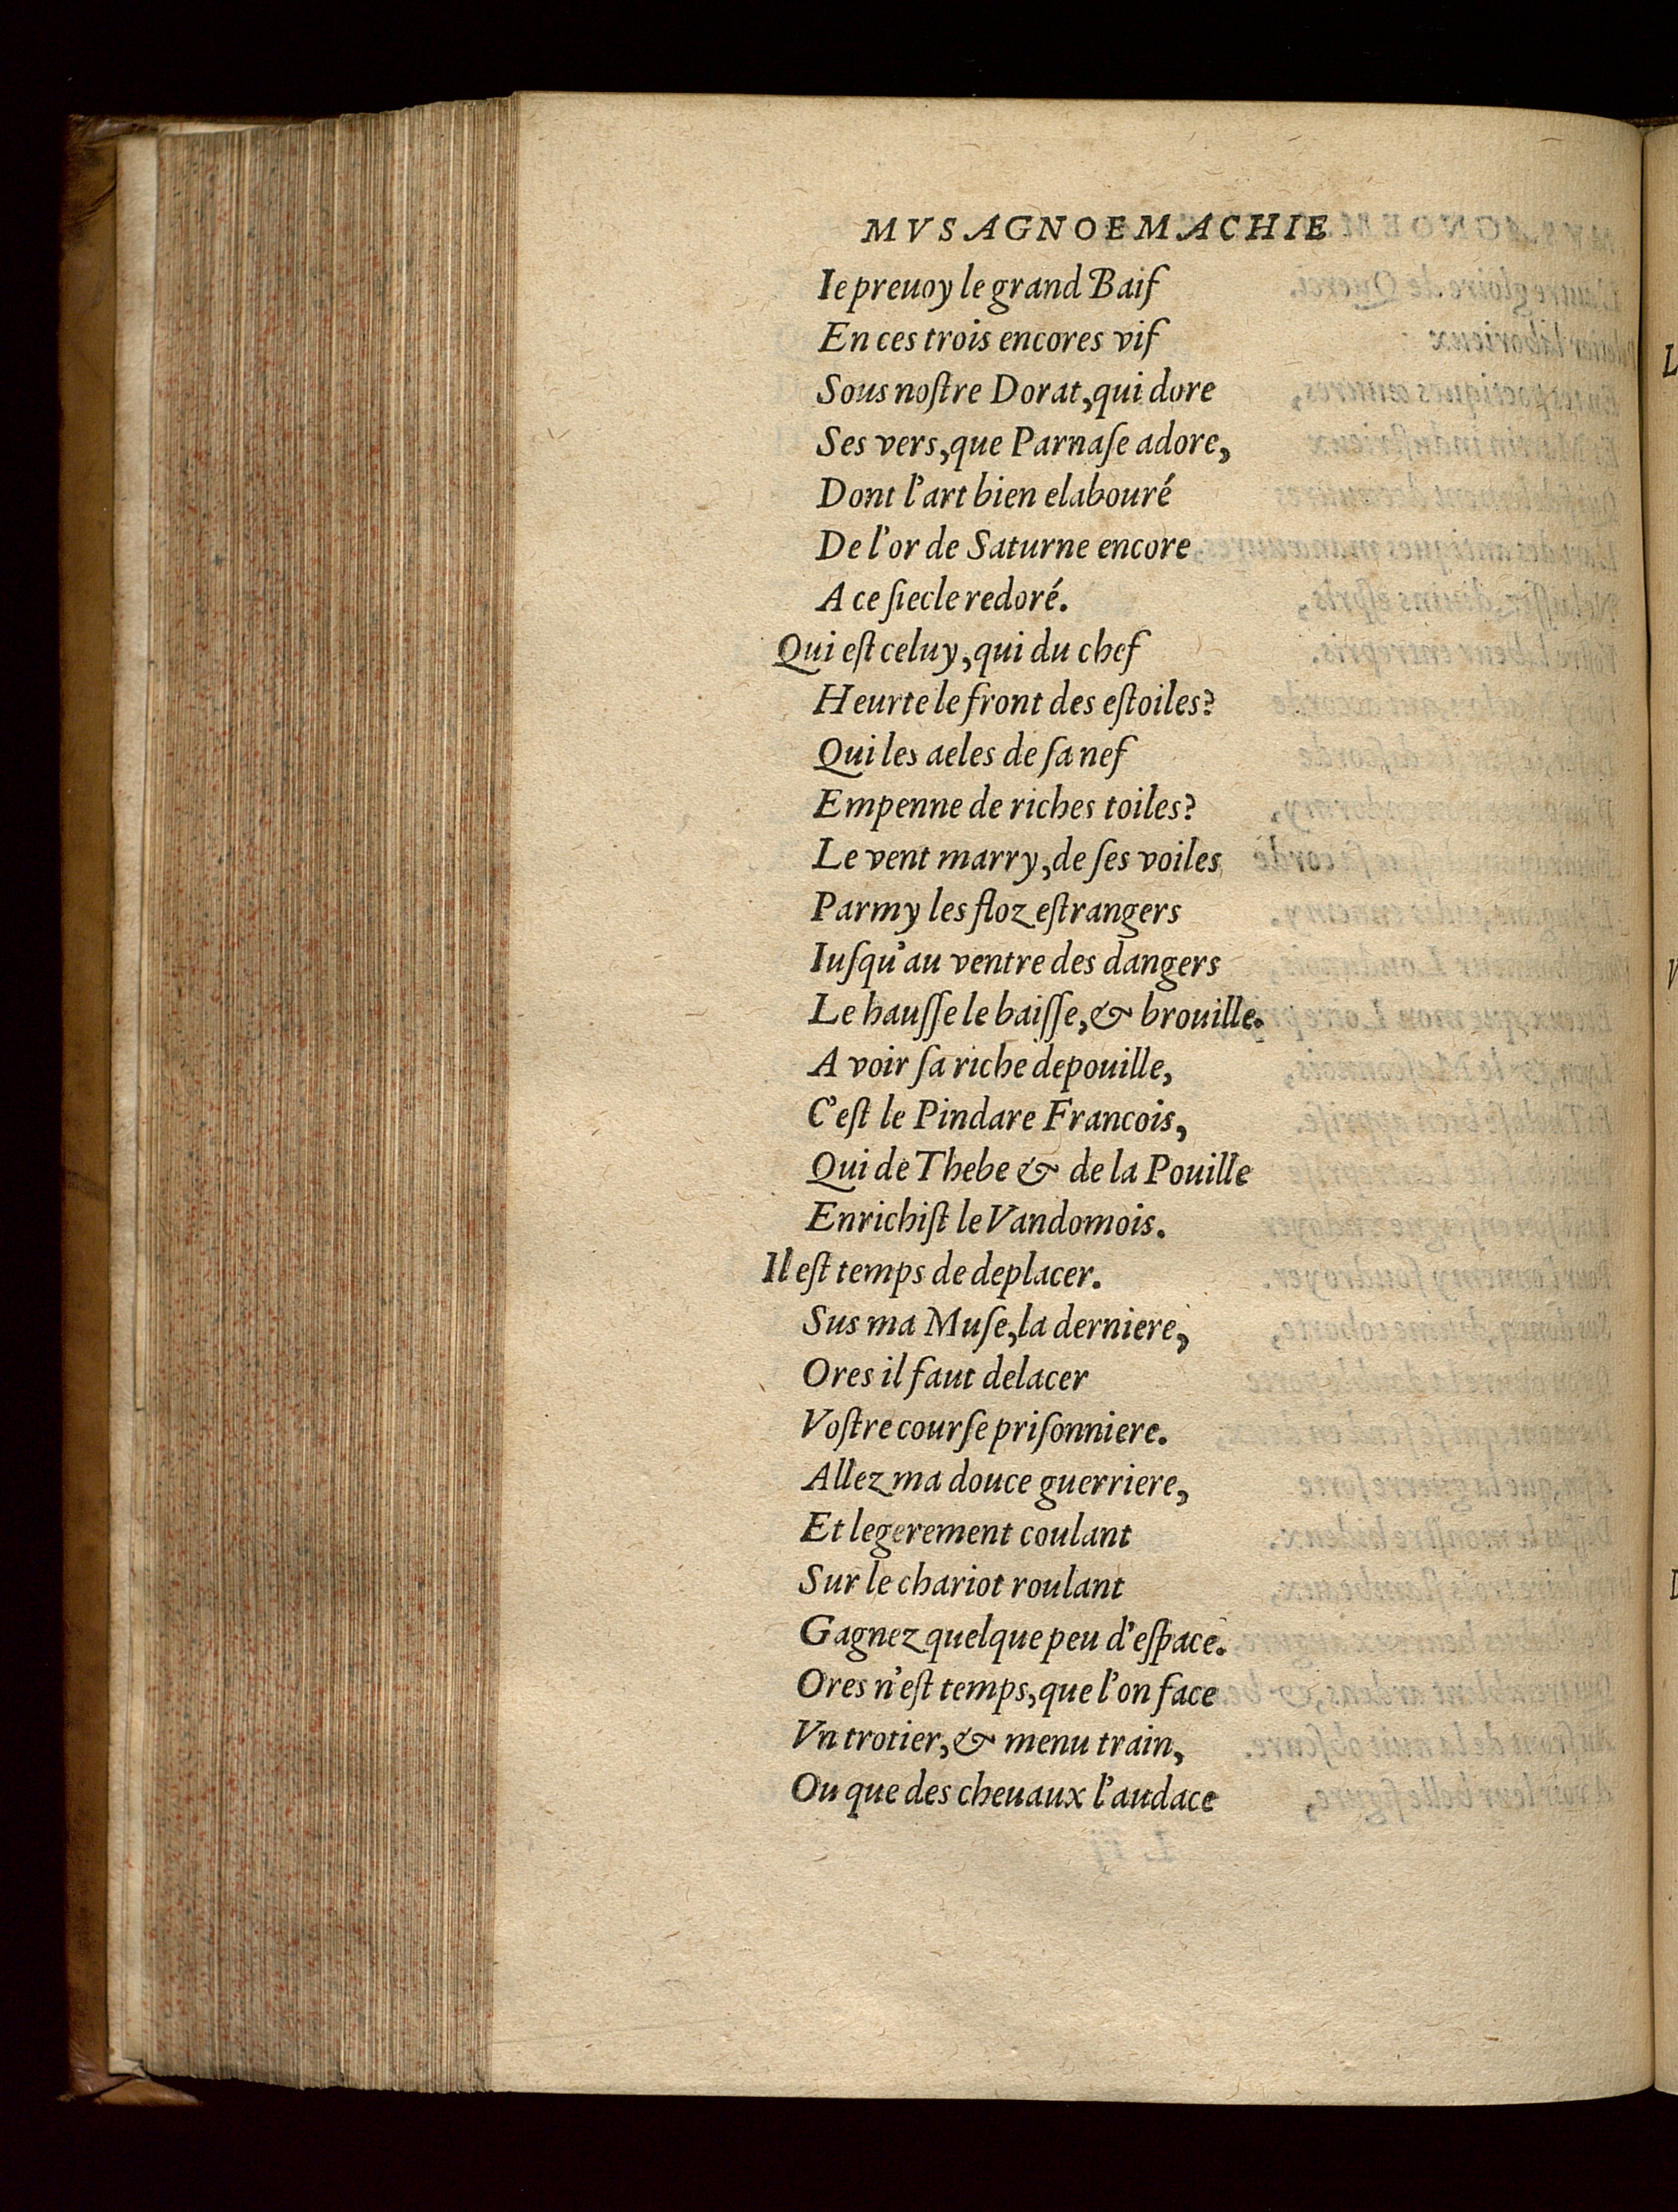 MVSAGNOEMACHIE
Ie preuoy le grand Baif
En ces trois encores vif
Sous noſtre Dorat, qui dore
Ses vers, que Parnaſe adore,
Dont l'art bien elabouré
De l'or de Saturne encore
A ce ſiecle redoré.
Qui eſt celuy, qui du chef
Heurte le front des eſtoiles?
Qui les aeles de ſa nef
Empenne de riches toiles?
Le vent marry, de ſes voiles
Parmy les floz eſtrangers
Iuſqu'au ventre des dangers
Le hauſſe le baiſſe, & brouille.
A voir ſa riche depouille,
C'eſt le Pindare Francois,
Qui de Thebe & de la Pouille
Enrichiſt le Vandomois.
Il eſt temps de deplacer.
Sus ma Muſe, la derniere,
Ores il faut delacer
Voſtre courſe priſonniere.
Allez ma douce guerriere,
Et legerement coulant
Sur le chariot roulant
Gagnez quelque peu d'eſpace.
Ores n'eſt temps, que l'on face
Vn trotier, & menu train,
Ou que des cheuaux l'audace